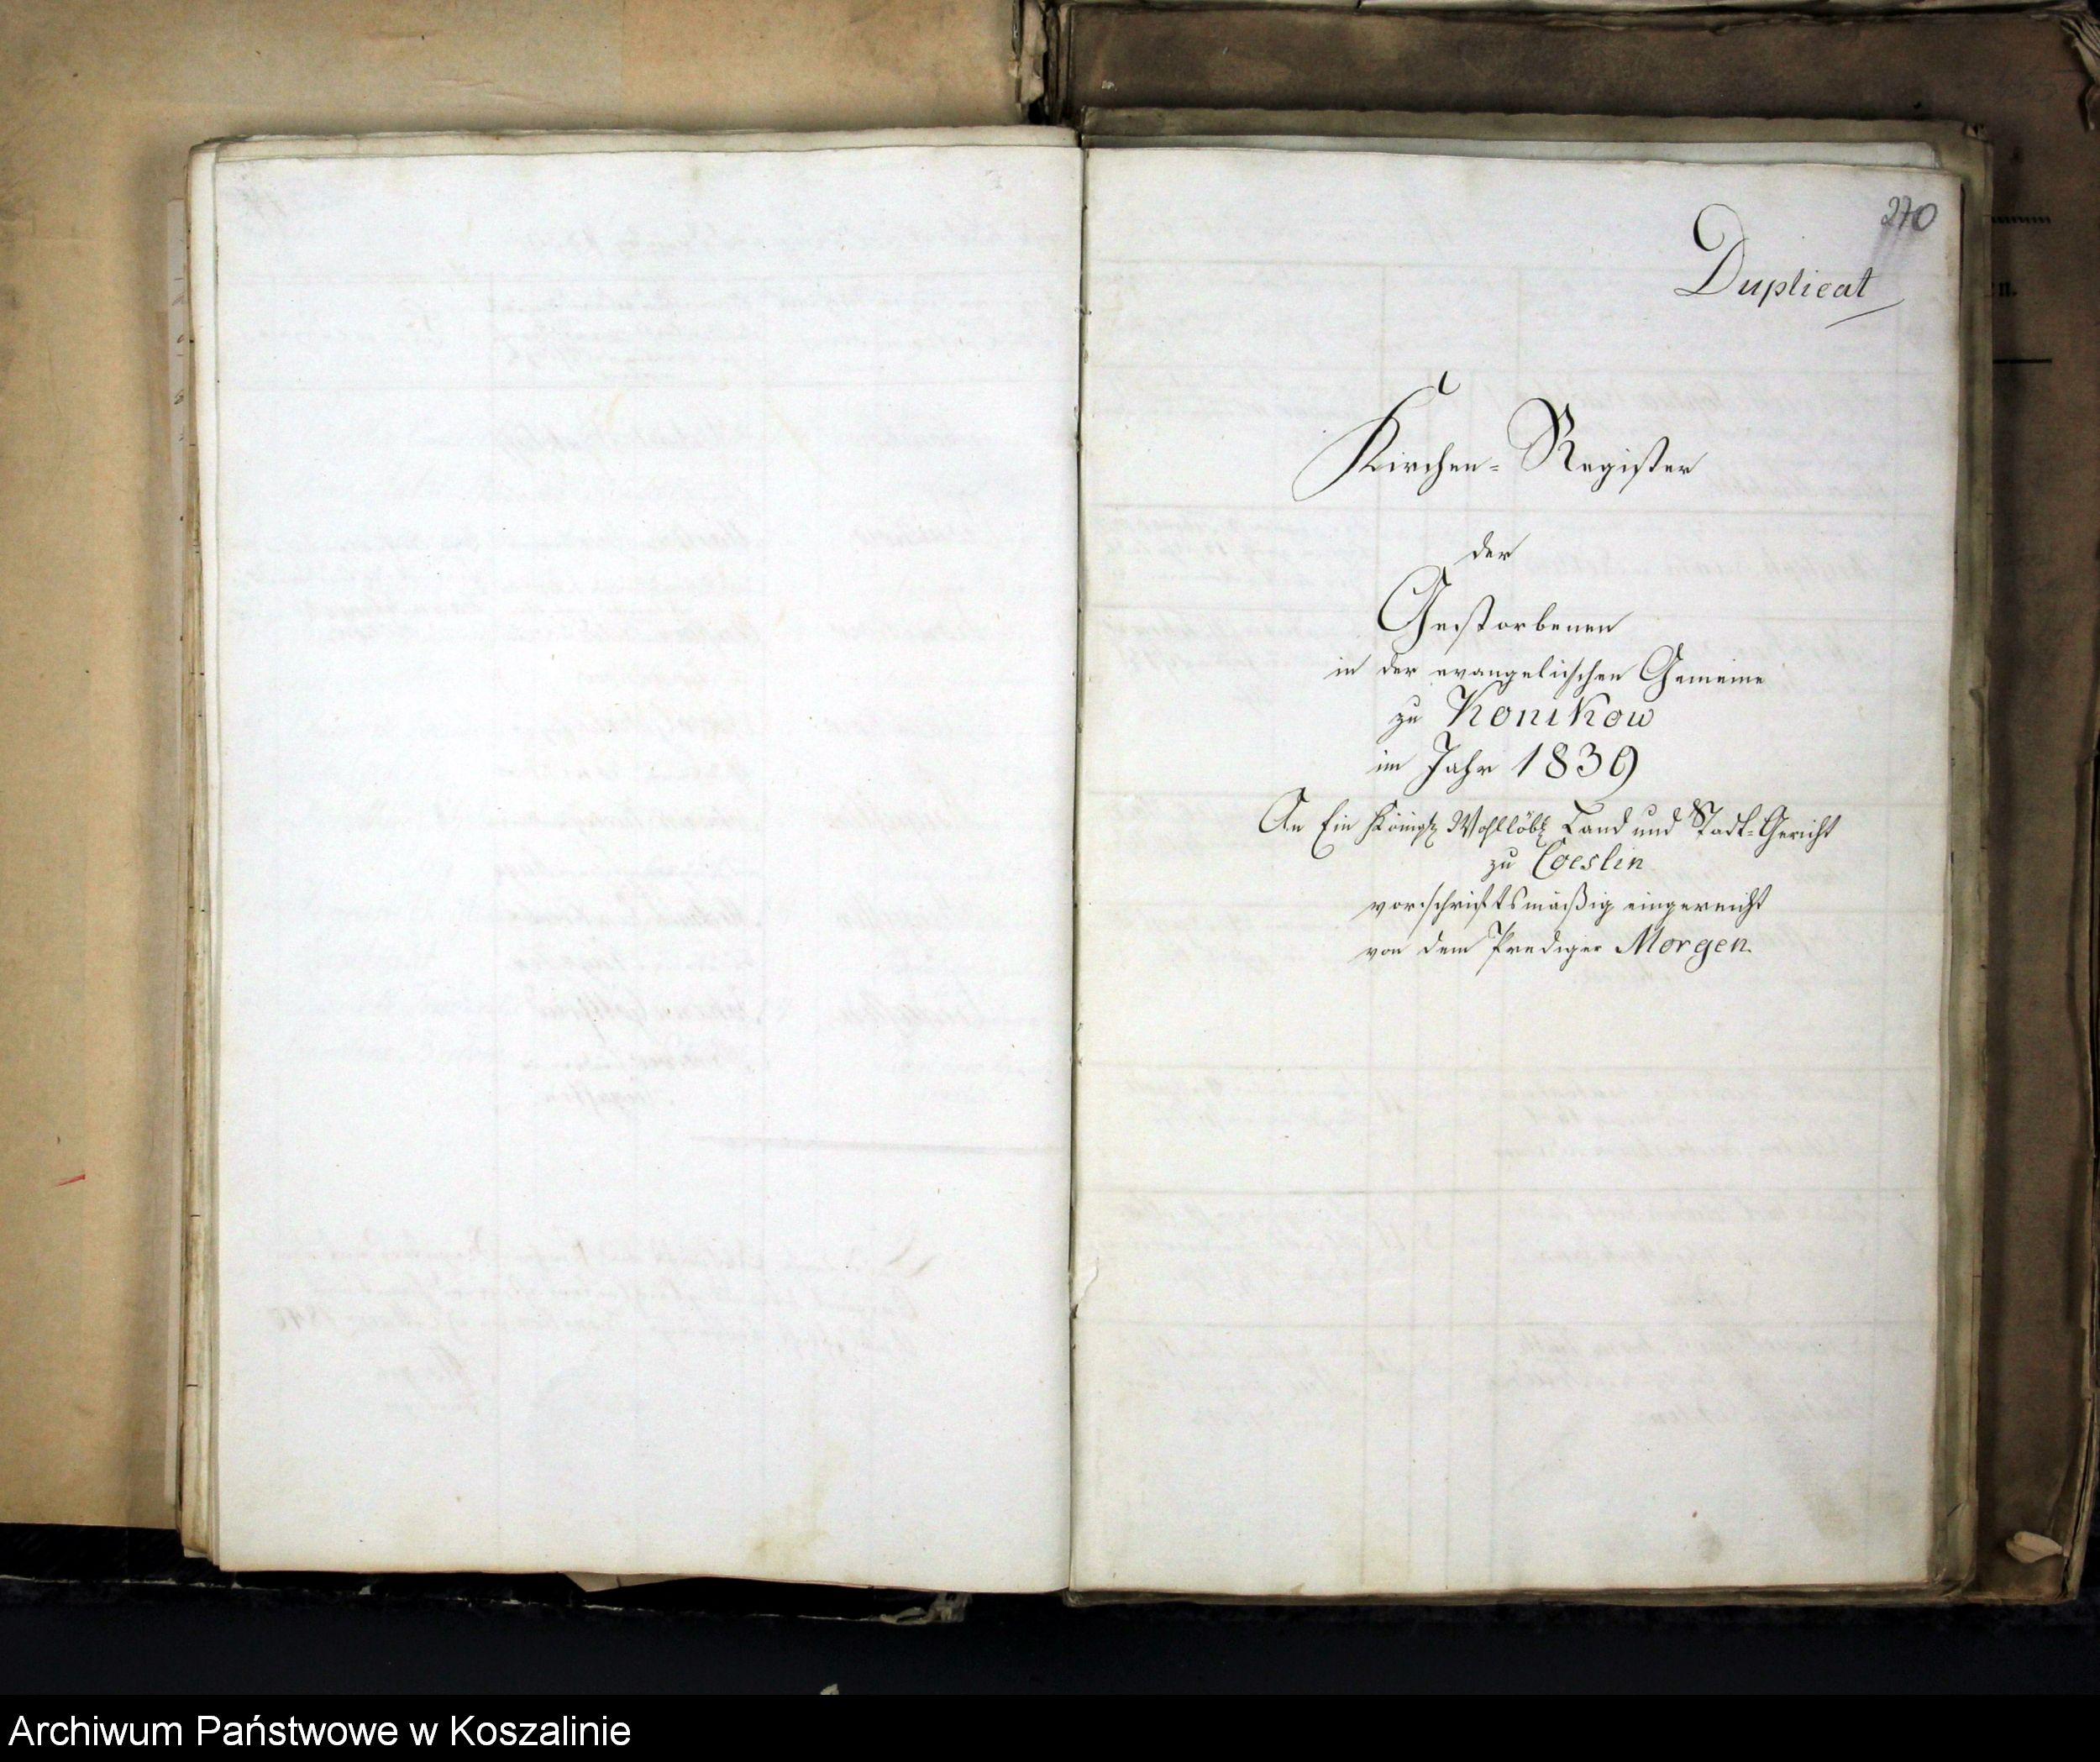 270
Duplicat
Kirchen-Register
der
Gestorbenen
in der evangelischen Gemeine
zu Konikow
im Jahr 1839
An Ein Königl. Wohllöbl. Land und Stadt-Gericht
zu Coeslin
vorschriftsmäßig eingereicht
von dem Prediger Morgen.
Archiwum Państwowe w Koszalinie